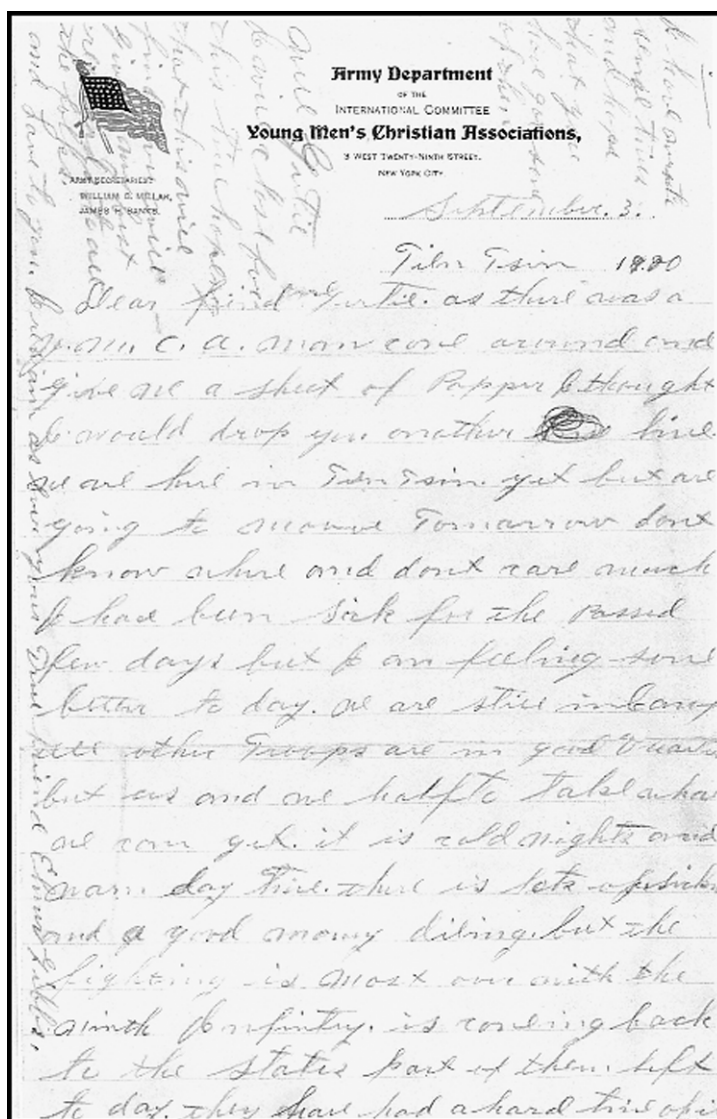 Army Department
OF THE
INTERNATIONAL COMMITTEE
Young Men's Christian Associations,
3 WEST TWENTY-NINTH STREET.
NEW YORK CITY.
ARMY SECRETARIES:
WILLIAM B. MILLAR,
JAMES H. BANKS.
September. 3.
Tien Tsin 1900
Dear friend Gurtie. as there was a
Y. M. C. A. man come around and
give me a sheet of Papper I thought
I would drop you another line
we are here in Tien Tsin. yet but are
going to mouve Tomarrow dont
know where and dont care much
I had been Sick for the Passed
few days but I am feeling some
better to day. We are still in
all other Troops are in good
but us and we halfto take
we can get. it is cold nights and
warm day time. there is lots of
and a good manny dieing. but the
fighting is most over with the
ninth Infintry. is comeing back
to the States Part of them. left
to day. they have had a hard time
I have
and
that
have
of
Well Gurtie
I will close for
this time hope
that this will
find
the
and love to you. I remain as ever your True friend Elmer